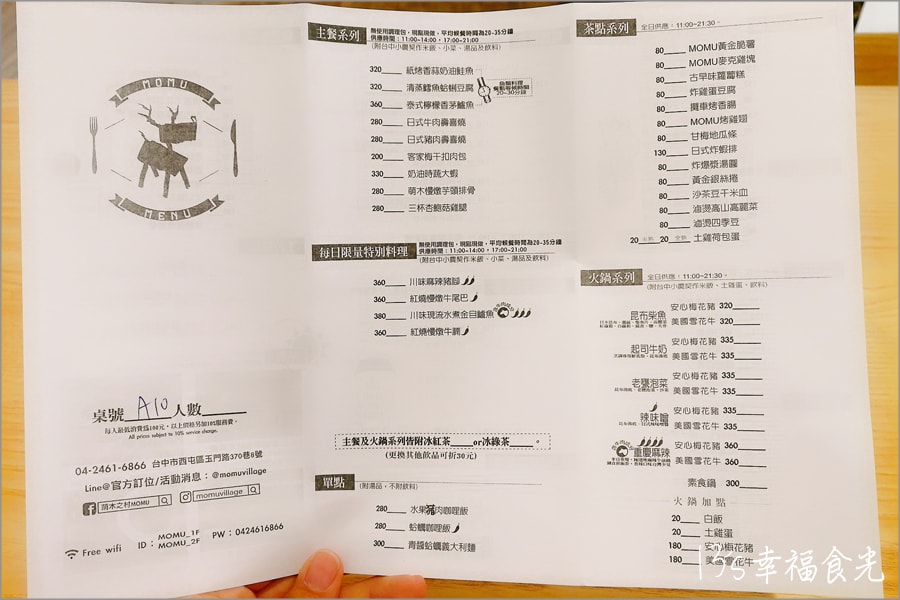 MOMU
MENU
桌號 A10 人數
每人最低消費為100元，以上價格另加10%服務費。
All prices subject to 10% service charge.
04-2461-6866 台中市西屯區玉門路370巷8號
Line@官方訂位/活動消息：@momuvillage
萌木之村MOMU
momuvillage
Free wifi ID：MOMU_1F MOMU_2F PW：0424616866
主餐系列
無使用調理包，現點現做，平均候餐時間為20-35分鐘
供應時間：11:00~14:00，17:00~21:00
(附台中小農契作米飯、小菜、湯品及飲料)
320 紙烤香蒜奶油鮭魚
320 清蒸鱸魚蛤蜊豆腐
360 泰式檸檬香茅鱸魚
魚類料理
餐點等候時間
20-30分鐘
280 日式牛肉壽喜燒
280 日式豬肉壽喜燒
200 客家梅干扣肉包
330 奶油時蔬大蝦
280 萌木慢燉芋頭排骨
280 三杯杏鮑菇雞腿
每日限量特別料理
無使用調理包，現點現做，平均候餐時間為20-35分鐘
供應時間：11:00~14:00，17:00~21:00
(附台中小農契作米飯、小菜、湯品及飲料)
360 川味麻辣豬腳
360 紅燒慢燉牛尾巴
380 川味現流水煮金目鱸魚
360 紅燒慢燉牛腩
主餐及火鍋系列皆附冰紅茶 or冰綠茶 。
(更換其他飲品可折30元)
單點
(附湯品，不附飲料)
280 水果豬肉咖哩飯
280 蛤蠣咖哩飯
300 青醬蛤蠣義大利麵
茶點系列
全日供應：11:00~21:30。
80 MOMU黃金脆薯
80 MOMU麥克雞塊
80 古早味蘿蔔糕
80 炸雞蛋豆腐
80 攤車烤香腸
80 MOMU烤雞翅
80 甘梅地瓜條
130 日式炸蝦排
80 炸爆漿湯圓
80 黃金銀絲捲
80 沙茶豆干米血
80 滷燙高山高麗菜
80 滷燙四季豆
20 半熟 20 全熟 土雞荷包蛋
火鍋系列
全日供應：11:00~21:30。
(附台中小農契作米飯、土雞蛋、飲料)
昆布柴魚
安心梅花豬 320
美國雪花牛 320
起司牛奶
安心梅花豬 335
美國雪花牛 335
老甕泡菜
安心梅花豬 335
美國雪花牛 335
辣味噌
安心梅花豬 335
美國雪花牛 335
重慶麻辣
安心梅花豬 360
美國雪花牛 360
素食鍋 300
火鍋加點
20 白飯
20 土雞蛋
180 安心梅花豬
180 美國雪花牛
幸福食光